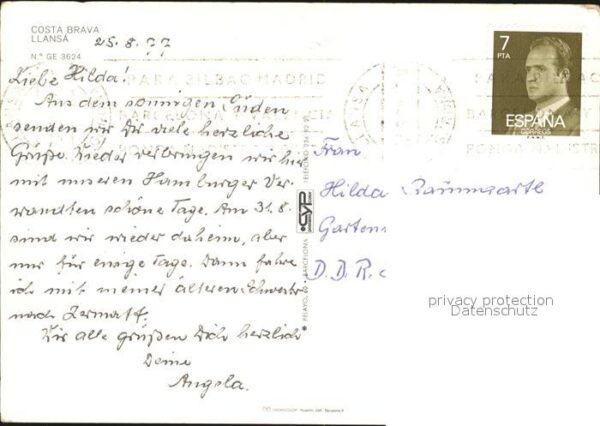 COSTA BRAVA
LLANSÁ
N.º GE 3624
25.8.77
Liebe Hilda!
Aus dem sonnigen Süden
senden wir Dir viele herzliche
Grüße. Wieder verbringen wir hier
mit unseren Hamburger Ver-
wandten schöne Tage. Am 31.8.
sind wir wieder daheim, aber
nur für einige Tage. Dann fahre
ich mit meiner älteren Schwester
nach Zermatt.
Wir alle grüßen Dich herzlich
Deine
Angela.
CYP
PELAYO, 60 - BARCELONA
7
PTA
ESPAÑA
CORREOS
PARA BILBAO MADRID
BARCELONA
Frau
Hilda Baumgartl
Gartens
D.D.R.
privacy protection
Datenschutz